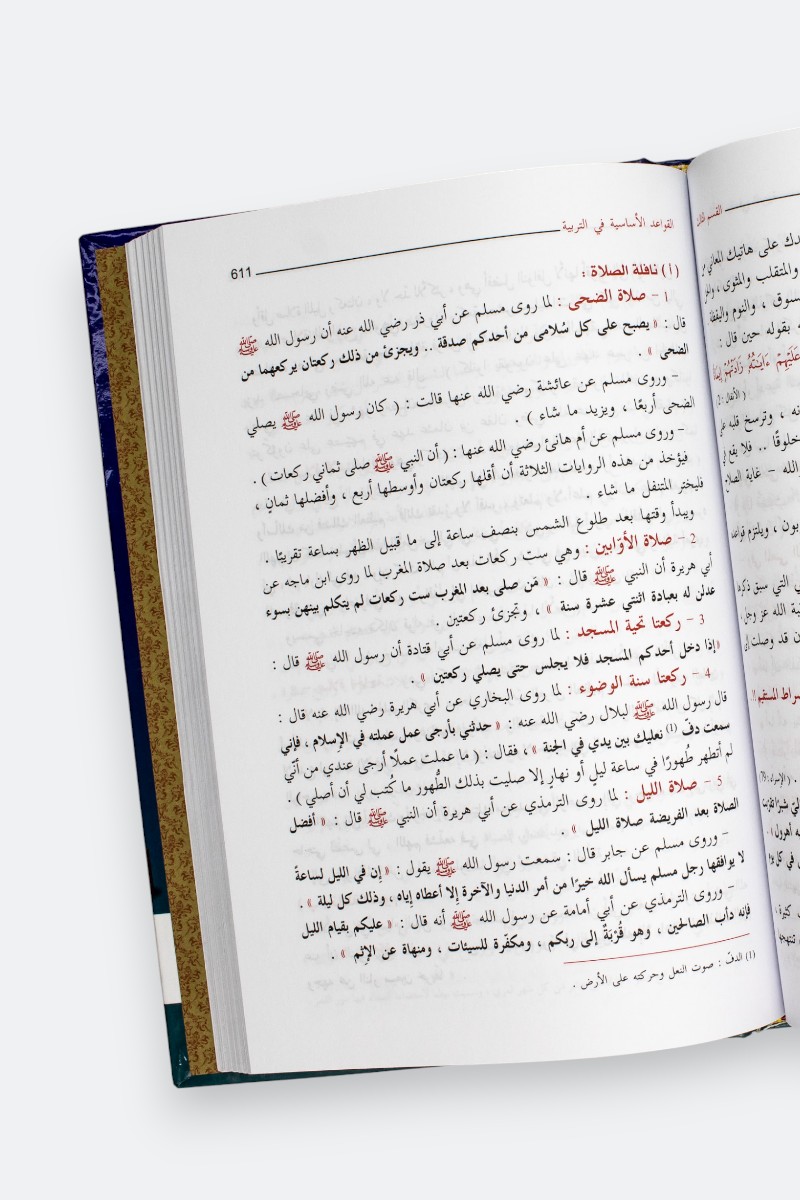 القسم الثالث
على هاتيك المعاني
والمتقلب والمثوى ،
، والنوم واليقظة
بقوله حين قال :
عَلَيْهِمْ ءَايَـٰتُهُۥ زَادَتْهُمْ
( الأنفال : 2 )
، وترسخ قلبه على
.. فلا يقع
الله – غاية
، ويلتزم قواعد
التي سبق ذكرها
الله عز وجل ،
قد وصلت إلى
المستقيم !!
( الإسراء : 79 )
القواعد الأساسية في التربية
611
(أ) نافلة الصلاة :
1 – صلاة الضحى : لما روى مسلم عن أبي ذر رضي الله عنه أن رسول الله ﷺ
قال : « يصبح على كل سُلامى من أحدكم صدقة .. ويجزئ من ذلك ركعتان يركعهما من
الضحى » .
– وروى مسلم عن عائشة رضي الله عنها قالت : ( كان رسول الله ﷺ يصلي
الضحى أربعًا ، ويزيد ما شاء ) .
– وروى مسلم عن أم هانئ رضي الله عنها : ( أن النبي ﷺ صلى ثماني ركعات ) .
فيؤخذ من هذه الروايات الثلاثة أن أقلها ركعتان وأوسطها أربع ، وأفضلها ثمانٍ ،
فليختر المتنفل ما شاء .
ويبدأ وقتها بعد طلوع الشمس بنصف ساعة إلى ما قبيل الظهر بساعة تقريبًا .
2 – صلاة الأوّابين : وهي ست ركعات بعد صلاة المغرب لما روى ابن ماجه عن
أبي هريرة أن النبي ﷺ قال : « مَن صلى بعد المغرب ست ركعات لم يتكلم بينهن بسوء
عدلن له بعبادة اثنتي عشرة سنة » ، وتجزئ ركعتين .
3 – ركعتا تحية المسجد : لما روى مسلم عن أبي قتادة أن رسول الله ﷺ قال :
« إذا دخل أحدكم المسجد فلا يجلس حتى يصلي ركعتين » .
4 – ركعتا سنة الوضوء : لما روى البخاري عن أبي هريرة رضي الله عنه قال :
قال رسول الله ﷺ لبلال رضي الله عنه : « حدثني بأرجى عمل عملته في الإسلام ، فإني
سمعت دفّ (1) نعليك بين يدي في الجنة » ، فقال : ( ما عملت عملًا أرجى عندي من أنّي
لم أتطهر طُهورًا في ساعة ليلٍ أو نهارٍ إلا صليت بذلك الطُّهور ما كُتب لي أن أصلي ) .
5 – صلاة الليل : لما روى الترمذي عن أبي هريرة أن النبي ﷺ قال : « أفضل
الصلاة بعد الفريضة صلاة الليل » .
– وروى مسلم عن جابر قال : سمعت رسول الله ﷺ يقول : « إن في الليل لساعة
لا يوافقها رجل مسلم يسأل الله خيرًا من أمر الدنيا والآخرة إلا أعطاه إياه ، وذلك كل ليلة » .
– وروى الترمذي عن أبي أمامة عن رسول الله ﷺ أنه قال : « عليكم بقيام الليل
فإنه دأب الصالحين ، وهو قُرْبَةٌ إلى ربكم ، ومكفّرة للسيئات ، ومنهاة عن الإثم » .
(1) الدفّ : صوت النعل وحركته على الأرض .